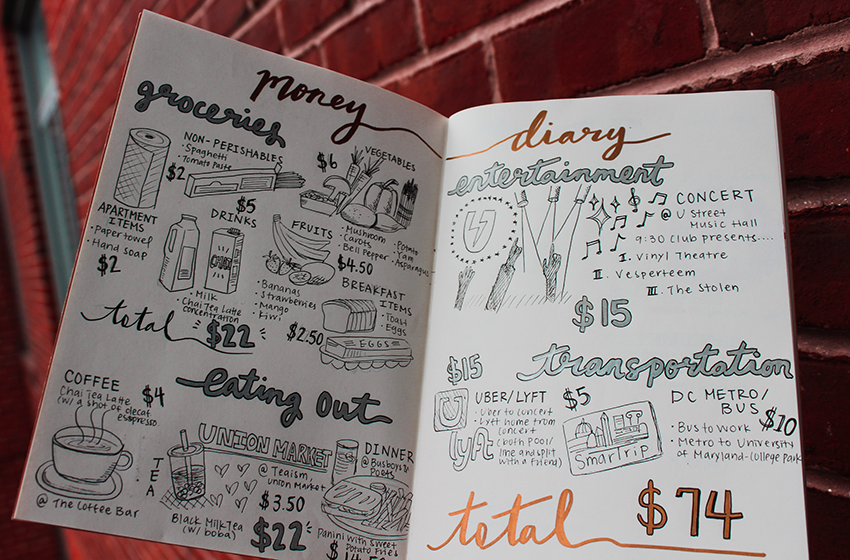 money
groceries
NON-PERISHABLES
• Spaghetti
• Tomato Paste
$2
$6
VEGETABLES
• Mushroom
• Carots
• Bell Pepper
• Potato
• Yam
• Asparagus
$4.50
APARTMENT
ITEMS
• Papertowel
• Hand soap
$2
$5
DRINKS
CHAI
• Milk
• Chai Tea Latte
concentration
FRUITS
• Bananas
• Strawberries
• Mango
• Kiwi
$2.50
BREAKFAST
ITEMS
• Toast
• Eggs
EGGS
total
$22
eating out
COFFEE
Chai Tea Latte
(w/ a shot of decaf
espresso)
$4
@ The Coffee Bar
TEA
UNION MARKET
@ Teaism,
Union Market
$3.50
Black Milk Tea
(w/ boba)
$22
DINNER
@ Busboys &
Poets
Panini with Sweet
Potato Fries
diary
entertainment
CONCERT
@ U Street
Music Hall
9:30 Club presents....
I. Vinyl Theatre
II. Vesperteem
III. The Stolen
$15
transportation
$15
UBER/LYFT
• Uber to concert
• Lyft home from
concert
(both pool/
line and split
with a friend)
U
lyft
$5
SmarTrip
DC METRO/
BUS
$10
• Bus to Work
• Metro to University
of Maryland-College Park
total
$74